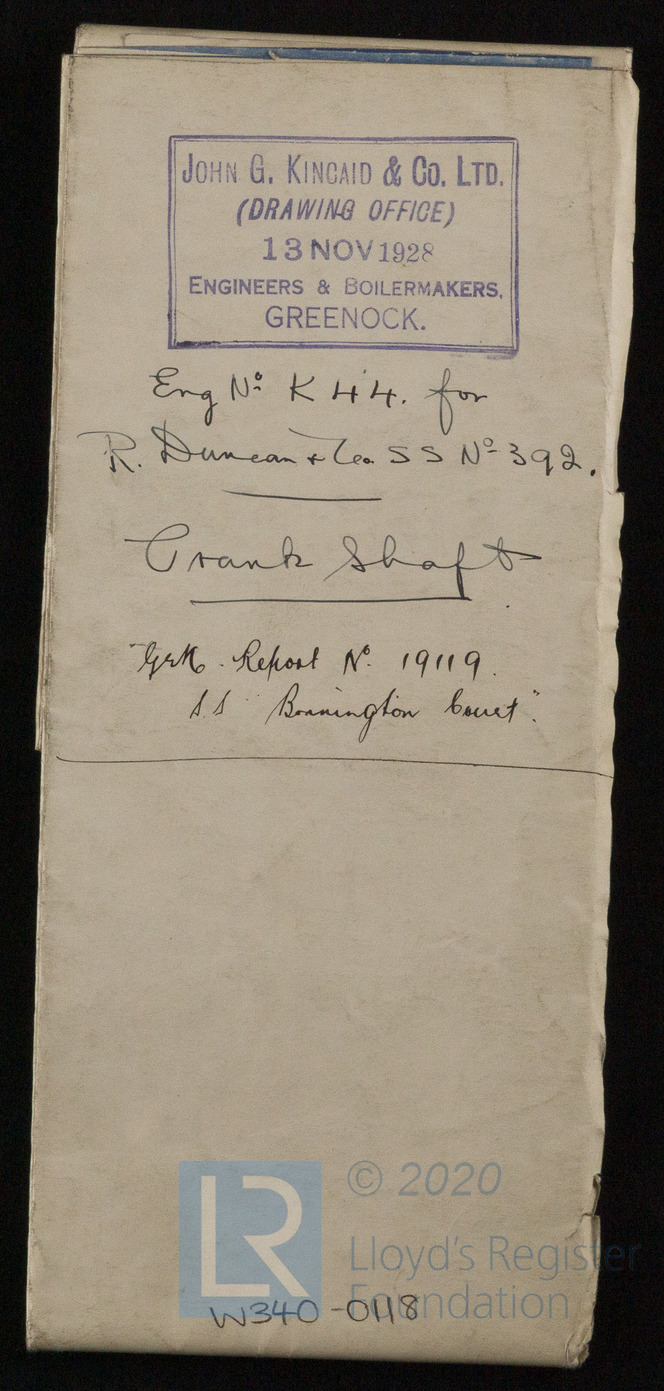 JOHN G. KINCAID & CO. LTD.
(DRAWING OFFICE)
13 NOV 1928
ENGINEERS & BOILERMAKERS,
GREENOCK.
Eng No. K 44. for
R. Duncan & Co. SS No 392.
Crank Shaft
Grk. Report No. 19119.
S.S "Bonnington Court".
LR
© 2020
Lloyd's Register
Foundation
W340-0118